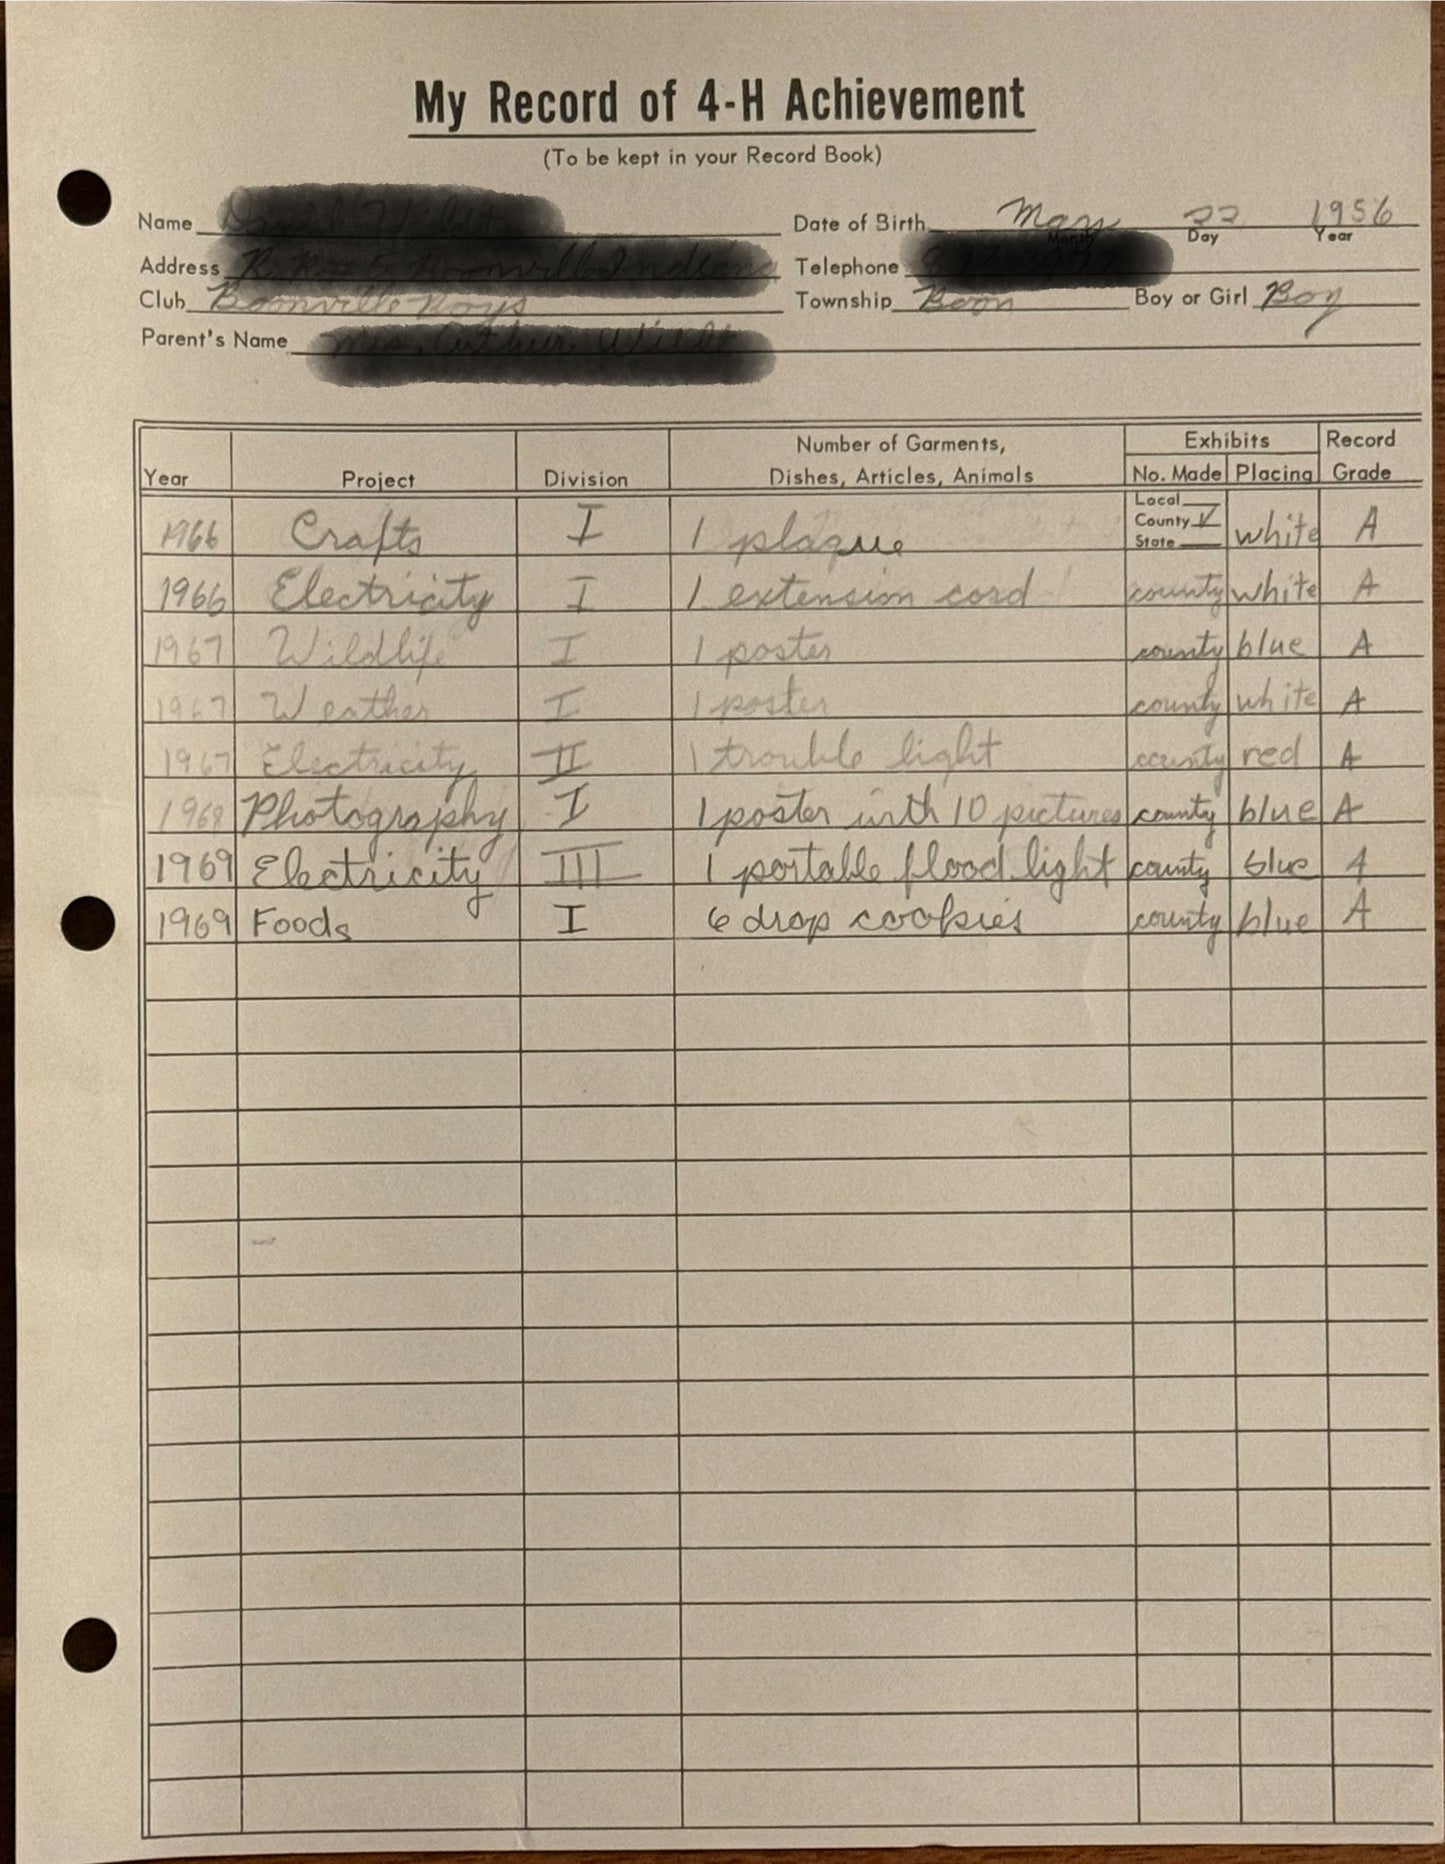 My Record of 4-H Achievement
(To be kept in your Record Book)
Name Date of Birth May 22 1956
Month Day Year
Address Telephone
Club Boonville Boys Township Boon Boy or Girl Boy
Parent's Name
Year Project Division Number of Garments, Dishes, Articles, Animals Exhibits No. Made Placing Record Grade
1966 Crafts I 1 plaque Local County ✓ State white A
1966 Electricity I 1 extension cord county white A
1967 Wildlife I 1 poster county blue A
1967 Weather I 1 poster county white A
1967 Electricity II 1 trouble light county red A
1968 Photography I 1 poster with 10 pictures county blue A
1969 Electricity III 1 portable flood light county blue A
1969 Foods I 6 drop cookies county blue A